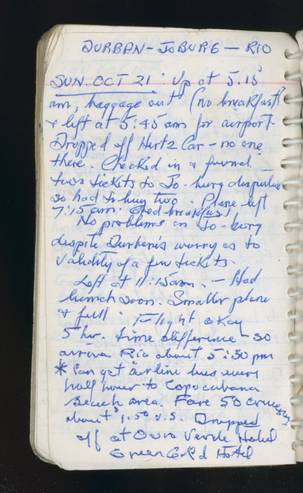 DURBAN - JOBURG - RIO
SUN. OCT 21 : Up at 5.15
am, baggage out (no breakfast)
& left at 5:45 am for airport.
Dropped off Hertz Car - no one
there. Checked in & found
two tickets to Jo-burg
so had to buy two. Plane left
7:15 am. Had breakfast!
No problems in Jo-burg
despite Durban's worry as to
validity of a few tickets.
Left at 11:15am. - Had
lunch soon. Smaller plane
& full. Flight okay
5 hr. time difference - so
arrive Rio about 5:30 pm
* Can get airline bus every
half hour to Copacabana
beach area. Fare 50
about $1.50 U.S. Dropped
off at Ouro Verde Hotel
Green Gold Hotel